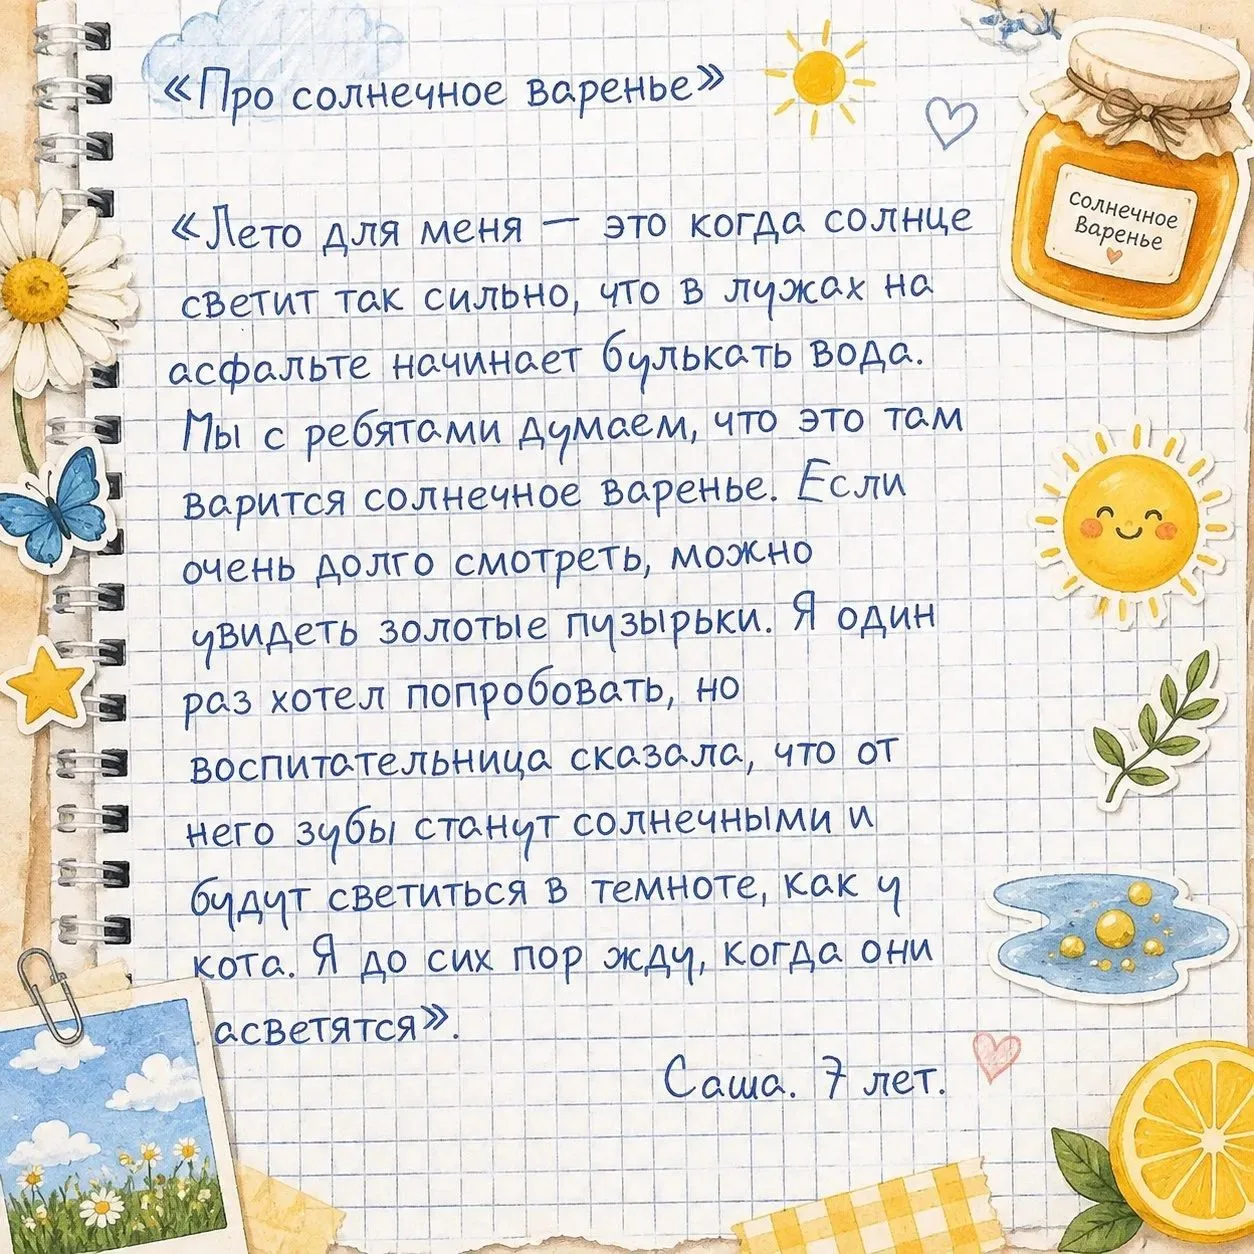 «Про солнечное варенье»
солнечное
Варенье
«Лето для меня — это когда солнце
светит так сильно, что в лужах на
асфальте начинает булькать вода.
Мы с ребятами думаем, что это там
варится солнечное варенье. Если
очень долго смотреть, можно
увидеть золотые пузырьки. Я один
раз хотел попробовать, но
воспитательница сказала, что от
него зубы станут солнечными и
будут светиться в темноте, как у
кота. Я до сих пор жду, когда они
асветятся».
Саша. 7 лет.